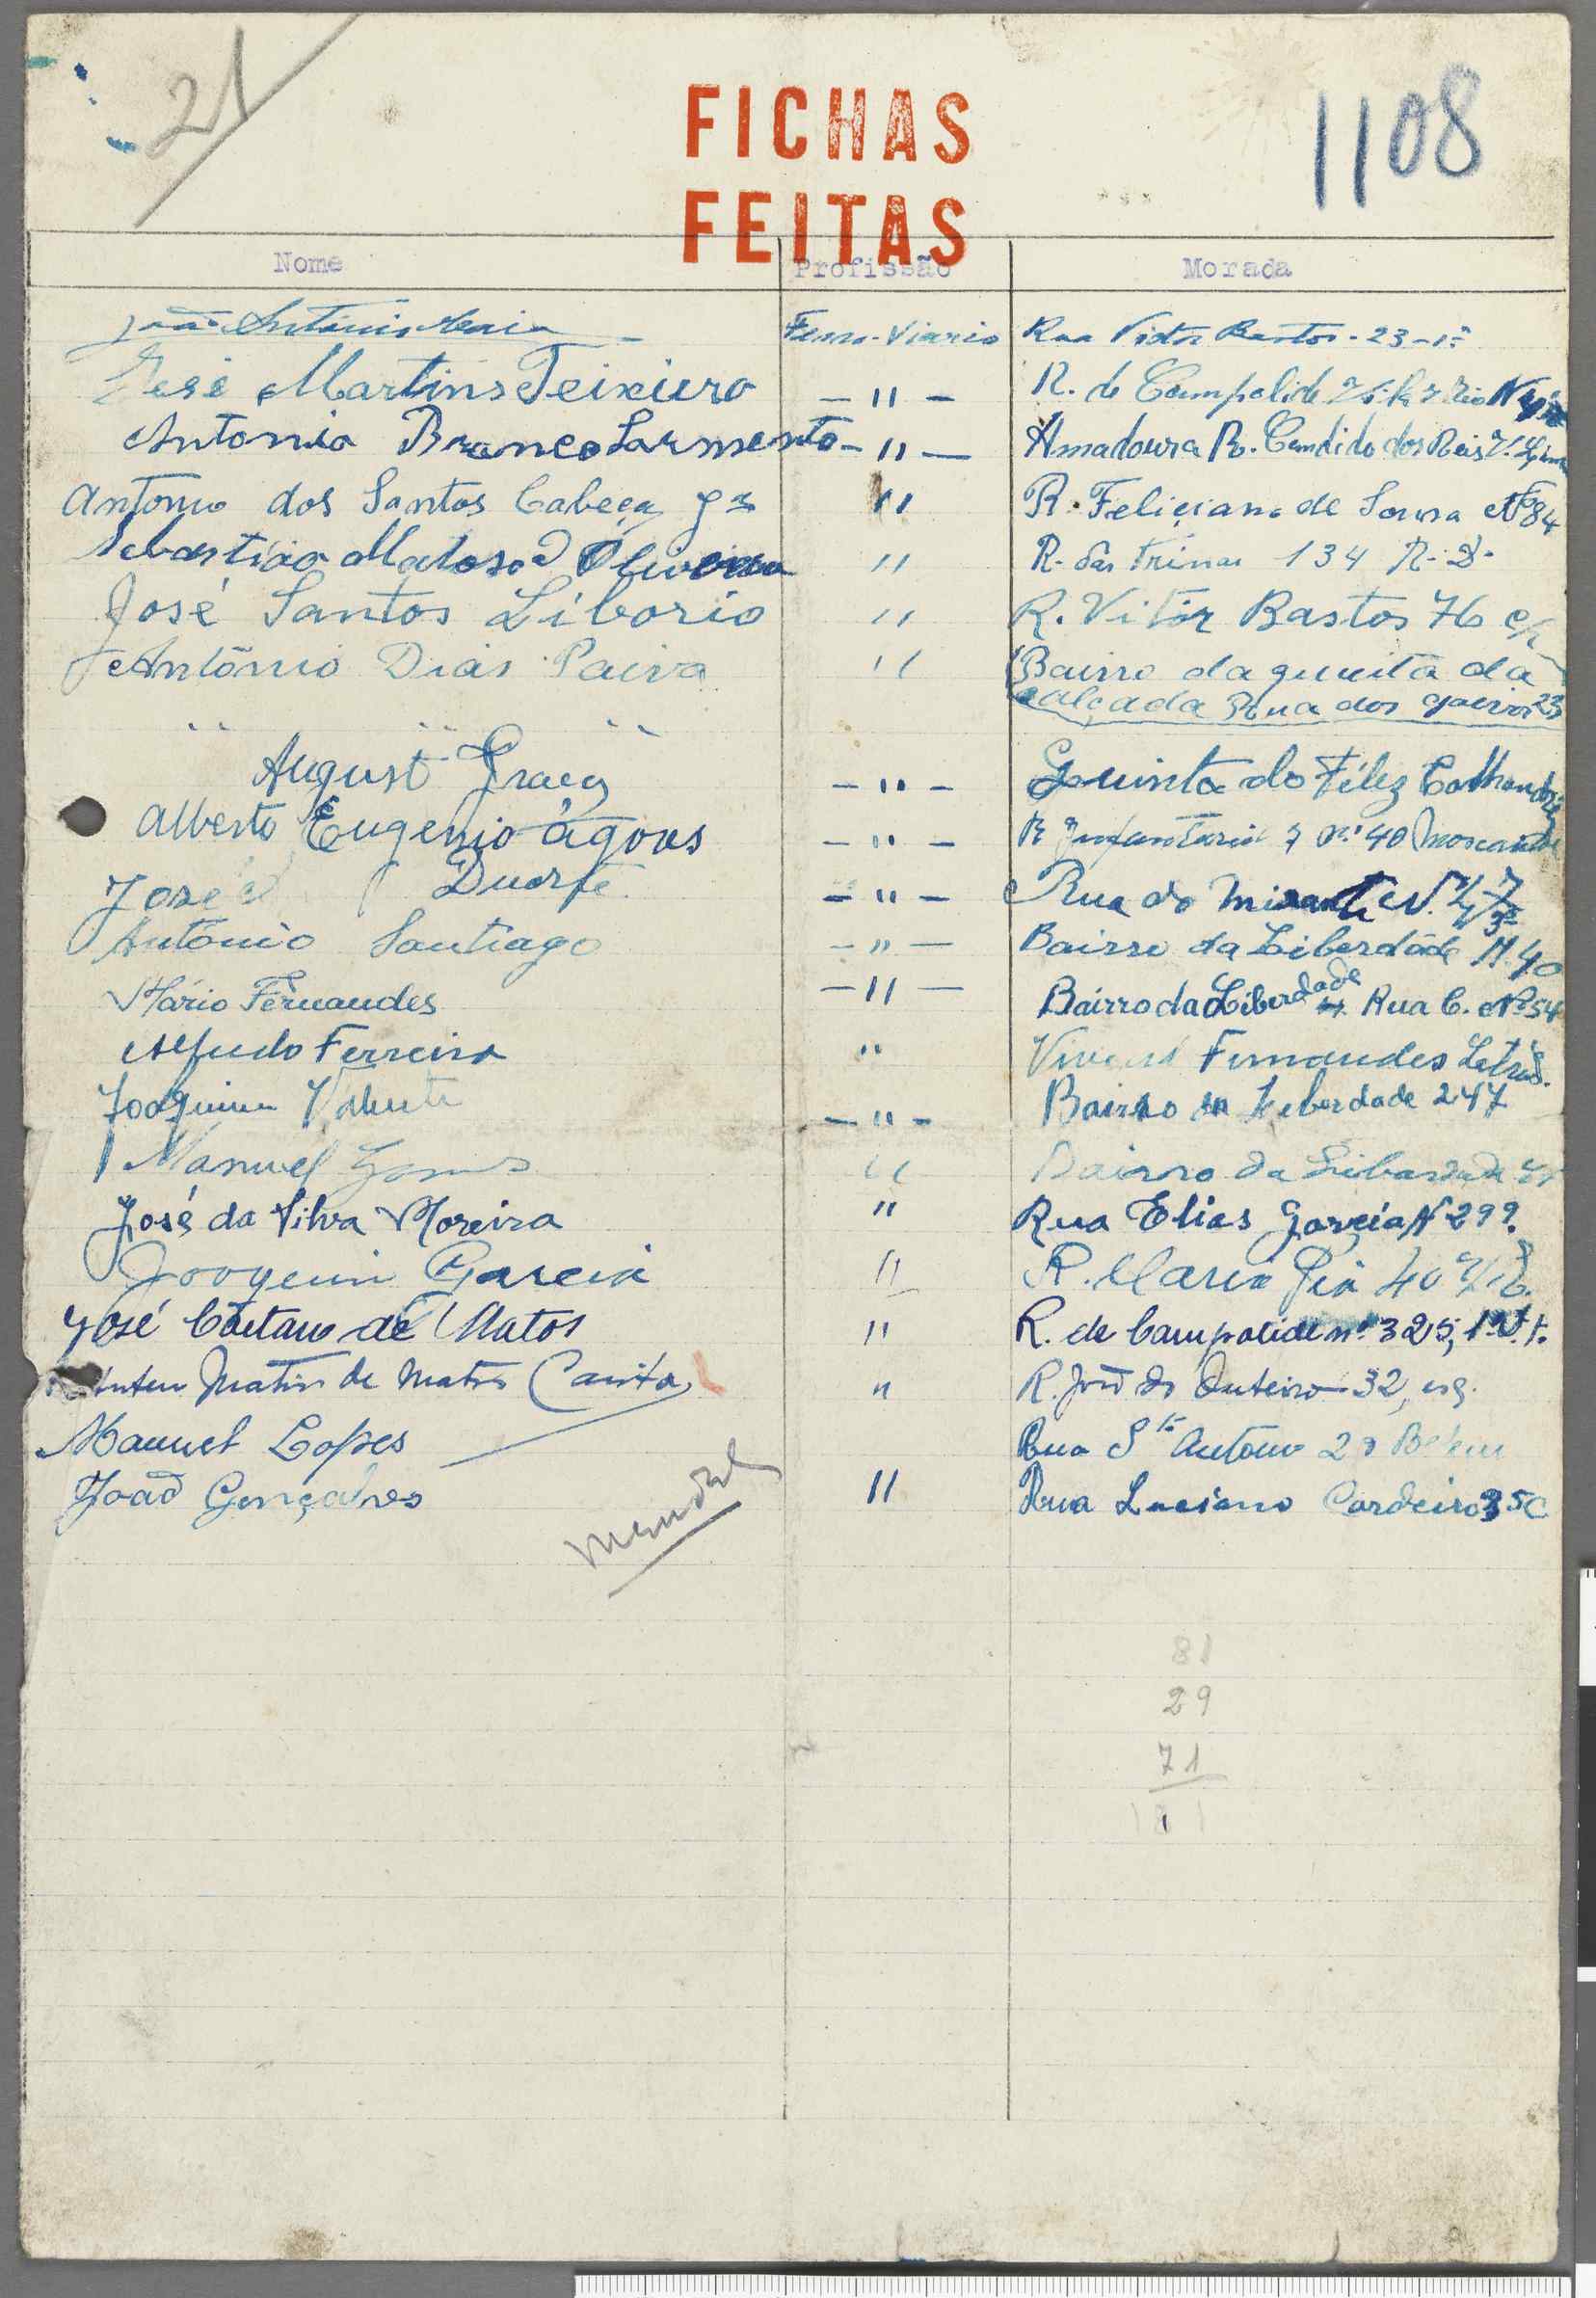 21
1108
FICHAS
FEITAS
Nome Profissão Morada
João António Ferro-Viario Rua Victor Bastos - 23 - 1º
José Martins Teixiera - " - R. de Campolide
Antonio Branco Sarmento - " - Amadoura R. Candido dos Reis
Antonio dos Santos Cabeça " R. Feliciano de Sousa Nº 84
Sebastião Matoso Oliveira " R. das Trinas 134 R. D.
José Santos Liborio " R. Vitor Bastos 76
António Dias Paiva " Bairro da quinta da
calçada Rua dos 23
August Graça - " - Quinta do
Alberto Eugenio - " - R Infantaria nº 40
José Duarte - " - Rua do Mirante N. 47
António Santiago - " - Bairro da Liberdade N 40
Mário Fernandes - " - Bairro da Liberdade Rua C. Nº 54
Alfredo Ferreira " Fernandes
Joaquim Valente - " - Bairro da Leberdade 247
Manuel Gomes " Bairro da Liberdade
José da Silva Moreira " Rua Elias Garçeia Nº 299.
Joaquim Garcia " R. Maria Pia 40
José Caetano de Matos " R. de Campolide nº 325, 1º
Matos de Matos " R. do Outeiro 32, esq.
Manuel Lopes Rua Stº António Belem
João Gonçalves " Rua Luciano Cordeiro 35C
81
29
71
181